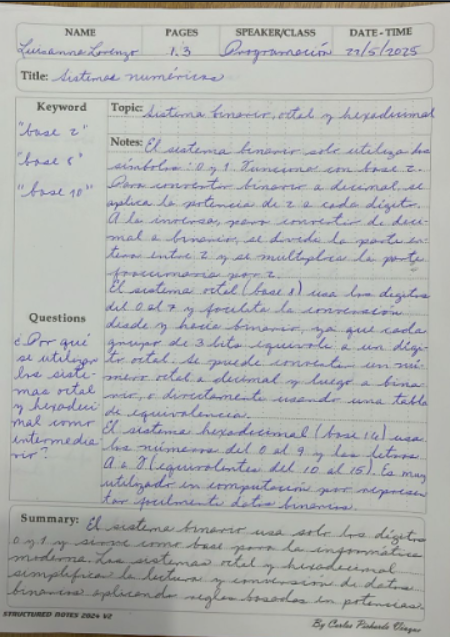 NAME PAGES SPEAKER/CLASS DATE - TIME
Luisanna Lorenzo 1.3 Programación 21/5/2025
Title: Sistemas numéricos
Keyword
"base 2"
"base 8"
"base 10"
Questions
¿Por qué
se utilizan
los siste-
mas octal
y hexadeci
mal como
intermedia
rio?
Topic: Sistema binario, octal y hexadecimal
Notes: El sistema binario solo utiliza dos
símbolos: 0 y 1. Funciona con base 2.
Para convertir binario a decimal, se
aplica la potencia de 2 a cada dígito.
A la inversa, para convertir de deci-
mal a binario, se divide la parte en-
tera entre 2 y se multiplica la parte
fraccionaria por 2.
El sistema octal (base 8) usa los dígitos
del 0 al 7 y facilita la conversión
desde y hacia binario, ya que cada
grupo de 3 bits equivale a un dígi-
to octal. Se puede convertir un nú-
mero octal a decimal y luego a bina
rio, o directamente usando una tabla
de equivalencia.
El sistema hexadecimal (base 16) usa
los números del 0 al 9 y las letras
A a F (equivalentes del 10 al 15). Es muy
utilizado en computación por represen
tar facilmente datos binarios.
Summary: El sistema binario usa solo los dígitos
0 y 1 y sirve como base para la informática
moderna. Los sistemas octal y hexadecimal
simplifica la lectura y conversión de datos
binarios aplicando reglas basadas en potencias.
STRUCTURED NOTES 2024 V2
By Carlos Pichardo Vargas